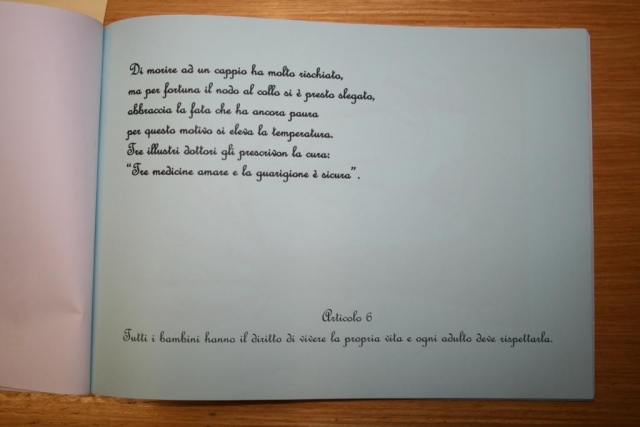 Di morire ad un cappio ha molto rischiato,
ma per fortuna il nodo al collo si è presto slegato,
abbraccia la fata che ha ancora paura
per questo motivo si eleva la temperatura.
Tre illustri dottori gli prescrivon la cura:
“Tre medicine amare e la guarigione è sicura”.
Articolo 6
Tutti i bambini hanno il diritto di vivere la propria vita e ogni adulto deve rispettarla.